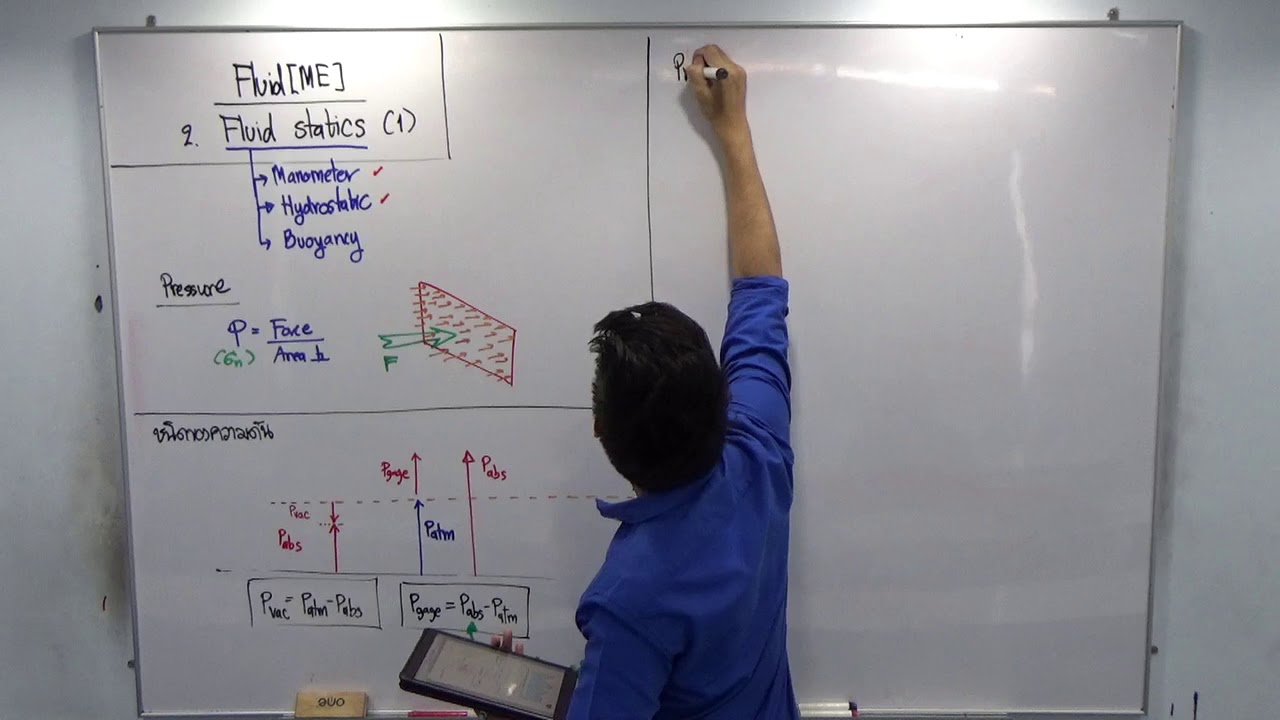 Fluid [ME]
2. Fluid statics (1)
Manometer ✓
Hydrostatic ✓
Buoyancy
Pressure
P = Force / Area ⊥
(σn)
F
ชนิดของความดัน
Pgage
Pabs
Pvac
Pabs
Patm
Pvac = Patm - Pabs
Pgage = Pabs - Patm